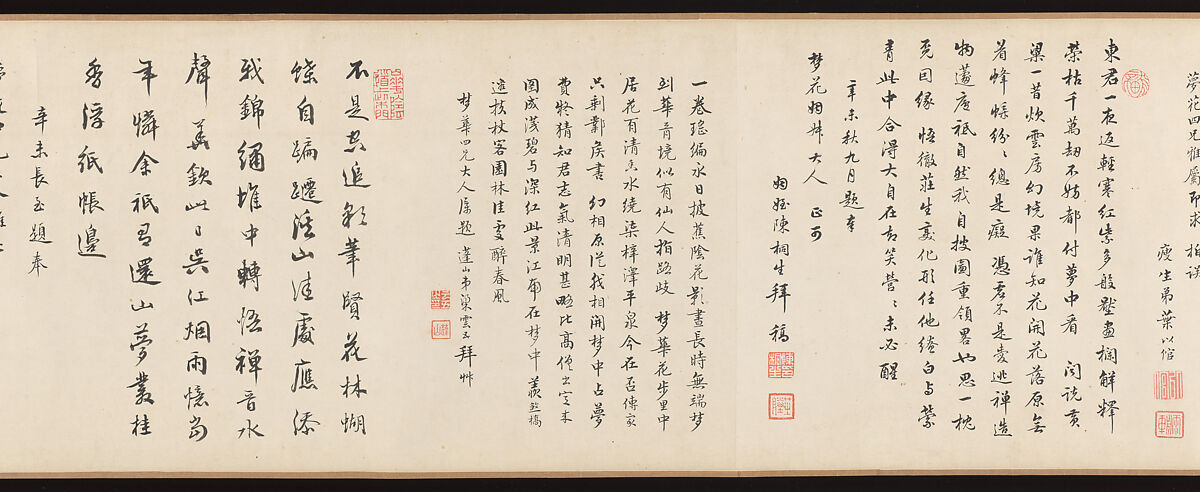 夢花四兄雅屬即求 拍誤
瘦生弟葉以倌
東君一夜返輕寒紅紫多般壓畫欄解釋
榮枯千萬劫不妨都付夢中看 聞說黃
粱一昔炊雲房幻境果誰知花開花落原無
着蜂蝶紛紛總是癡 憑君不是愛逃禪造
物蘧廬祇自然我自披圖重領畧也思一枕
無因緣 悟徹莊生変化形任他綣白与縈
青此中合得大自在却笑營營未必醒
辛未秋九月題奉
夢花姻丈大人 正可
姻姪陳桐生拜稿
一卷瑤編永日披蕉陰花影晝長時無端夢
到華胥境似有仙人指路歧 夢華花步里中
居花百清香水繞渠梓澤平泉今在否傳家
只剩鄴侯書 幻相原從我相開夢中占夢
費疑猜知君志氣清明甚畧比高僧出定來
圖成淺碧与深紅此景江南在夢中羨煞
遊扶杖客園林佳處醉春風
夢華四兄大人屬題 蓬山弟巢雲 拜草
不是空追彩筆賢花林蝴
蝶自蹁躚溪山佳處應添
我錦繡堆中轉悟禪音水
聲 此日吳江烟雨憶當
年憐余祇有還山夢叢桂
香浮紙帳邊
辛未長至題奉